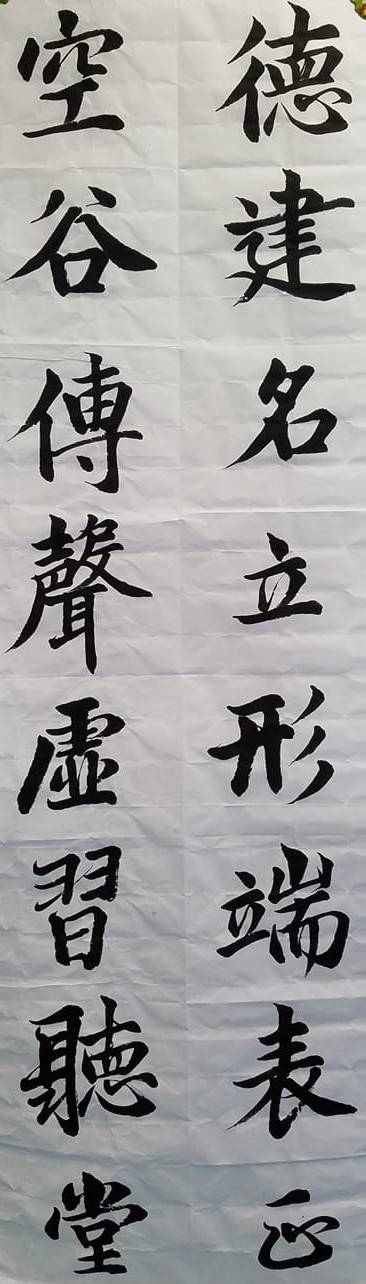 德建名立形端表正
空谷傳聲虛習聽堂